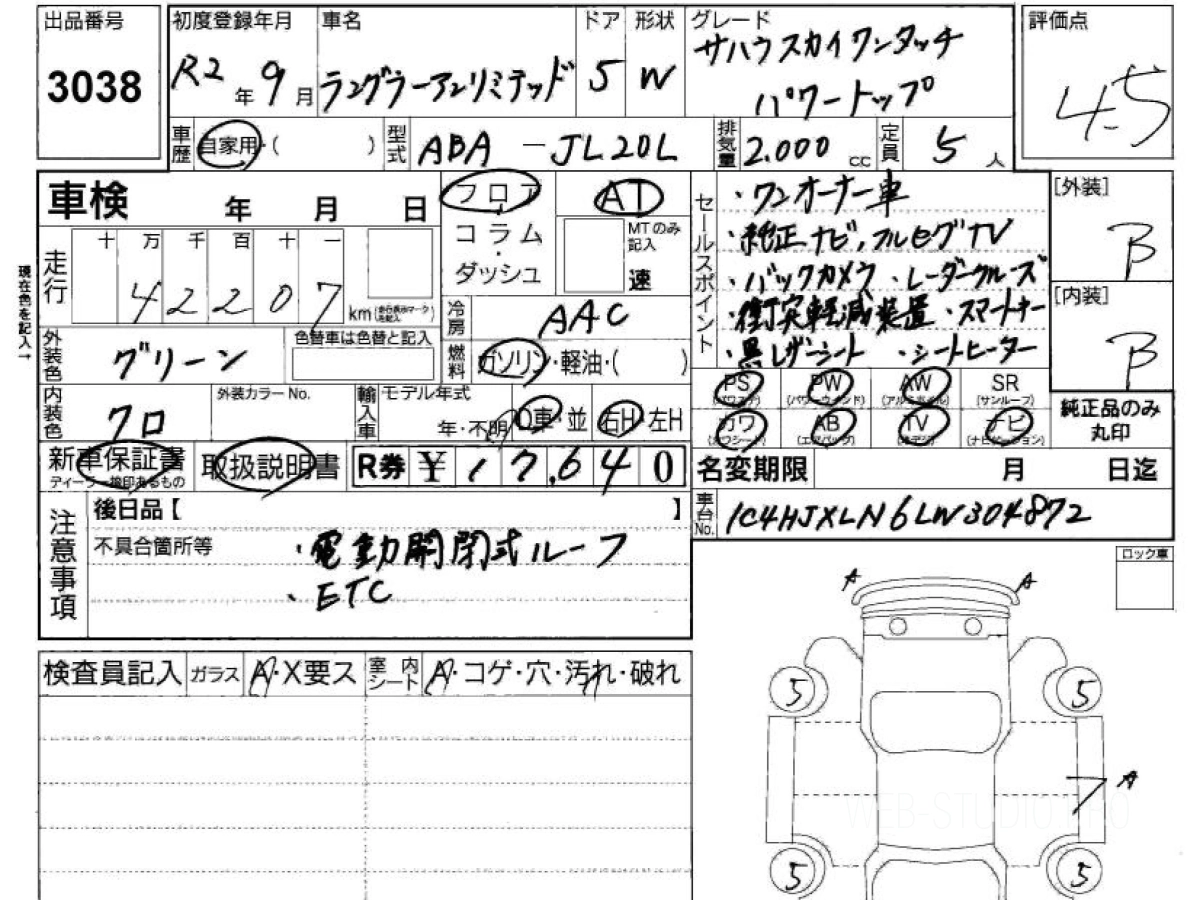 出品番号
3038
初度登録年月
R2年9月
車名
ラングラーアンリミテッド
ドア
5
形状
W
グレード
サハラスカイワンタッチ
パワートップ
評価点
4.5
車歴
自家用・( )
型式
ABA-JL20L
排気量
2.000cc
定員
5人
車検 年 月 日
フロア
コラム
・
ダッシュ
AT
MTのみ
記入
速
セールスポイント
・ワンオーナー車
・純正ナビ,フルセグTV
・バックカメラ ・レーダークルーズ
・衝突軽減装置 ・スマートキー
・黒レザーシート ・シートヒーター
[外装]
B
[内装]
B
現在色を記入→
走行
十 万 千 百 十 一
4 2 2 0 7
km(走行表示マークを記入)
冷房
AAC
外装色
グリーン
色替車は色替と記入
燃料
ガソリン・軽油・( )
内装色
クロ
外装カラーNo.
輸入車
モデル年式
年・不明
D車・並
右H・左H
PS
(パワステ)
PW
(パワーウインド)
AW
(アルミホイル)
SR
(サンルーフ)
カワ
(カワシート)
AB
(エアバッグ)
TV
ナビ
(ナビゲーション)
純正品のみ
丸印
新車保証書
ディーラー捺印あるもの
取扱説明書
R券 ¥17,640
名変期限 月 日迄
車台No.
1C4HJXLN6LW304872
注意事項
後日品【 】
不具合箇所等
・電動開閉式ルーフ
・ETC
ロック車
A
A
5
5
A
5
5
検査員記入
ガラス
A・X要ス
室内シート
A・コゲ・穴・汚れ・破れ
WEB-STUDIO.PRO